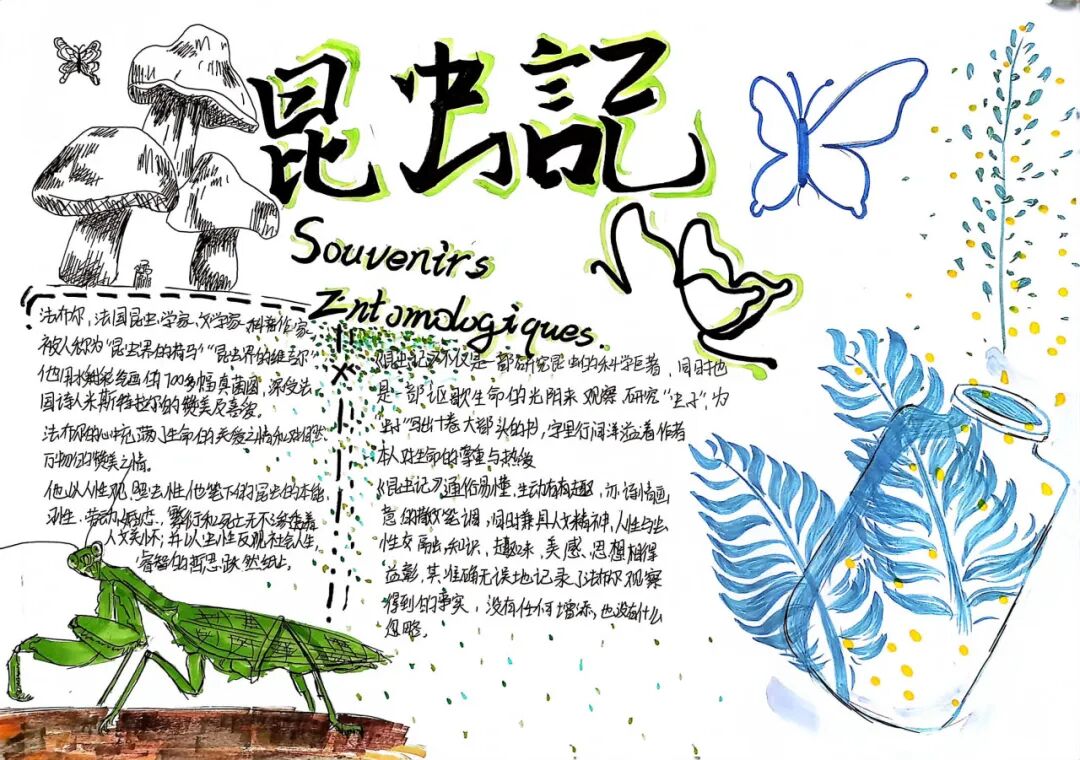 昆虫記
Souvenirs
Entomologiques
法布尔，法国昆虫学家、文学家、科普作家
被人称为“昆虫界的荷马”“昆虫界的维吉尔”
他用水彩绘画的700多幅真菌图，深受法
国诗人米斯特拉尔的赞美及喜爱。
法布尔的心中充满了生命的关爱之情和对自然
万物的赞美之情。
他以人性观照虫性，他笔下的昆虫的本能
习性、劳动、婚恋、繁衍和死亡无不渗透着
人文关怀；并以虫性反观社会人生，
睿智的哲思跃然纸上。
《昆虫记》不仅是一部研究昆虫的科学巨著，同时也
是一部讴歌生命的
观察研究“虫子”，为
虫子写出十卷大部头的书，字里行间洋溢着作者
本人对生命的尊重与热爱
《昆虫记》通俗易懂，生动有趣，亦
意的散文笔调，同时兼具人文精神，人性与虫
性交融，知识、趣味、美感、思想相得
益彰，其准确无误地记录了法布尔观察
得到的事实，没有任何增添，也没有什么
忽略。